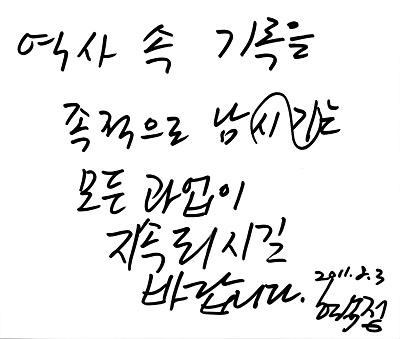 역사 속 기록을
족적으로 남시기는
모든 과업이
지속되시길
바랍니다.
2011.2.3